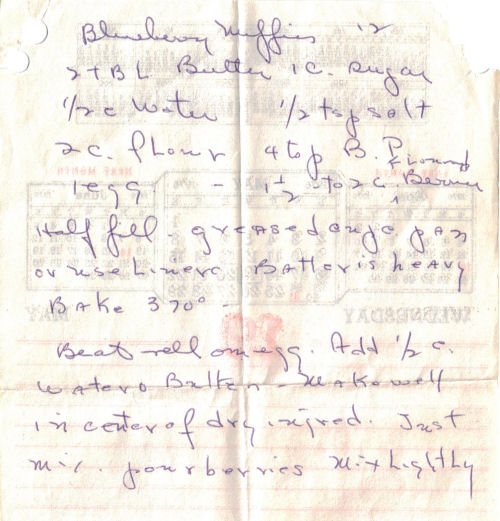 Blueberry Muffins 12
2 TBL Butter 1 c. sugar
1/2 c Water 1/2 tsp salt
2 c. flour 4 tsp B. P.
Floured
1 egg - 1 1/2 to 2 c. Berries
Half fill greased cup c pan
or use liners. Batter is heavy
Bake 370° -
Beat well one egg. Add 1/2 c.
Water & Butter - Make well
in center of dry ingred. Just
mix. pour berries Mix lightly
WEDNESDAY
MAY